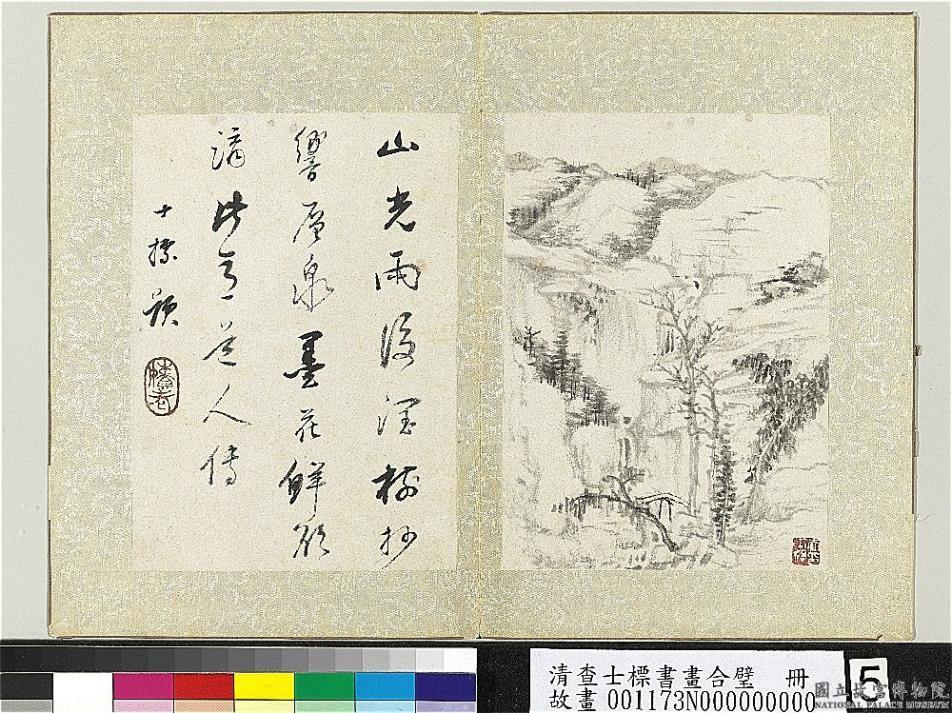 山光雨後溼樹杪
響層泉墨花鮮欲
滴此意道人傳
士標題
清查士標書畫合璧 冊
故畫 001173N000000000
5
國立故宮博物院
NATIONAL PALACE MUSEUM